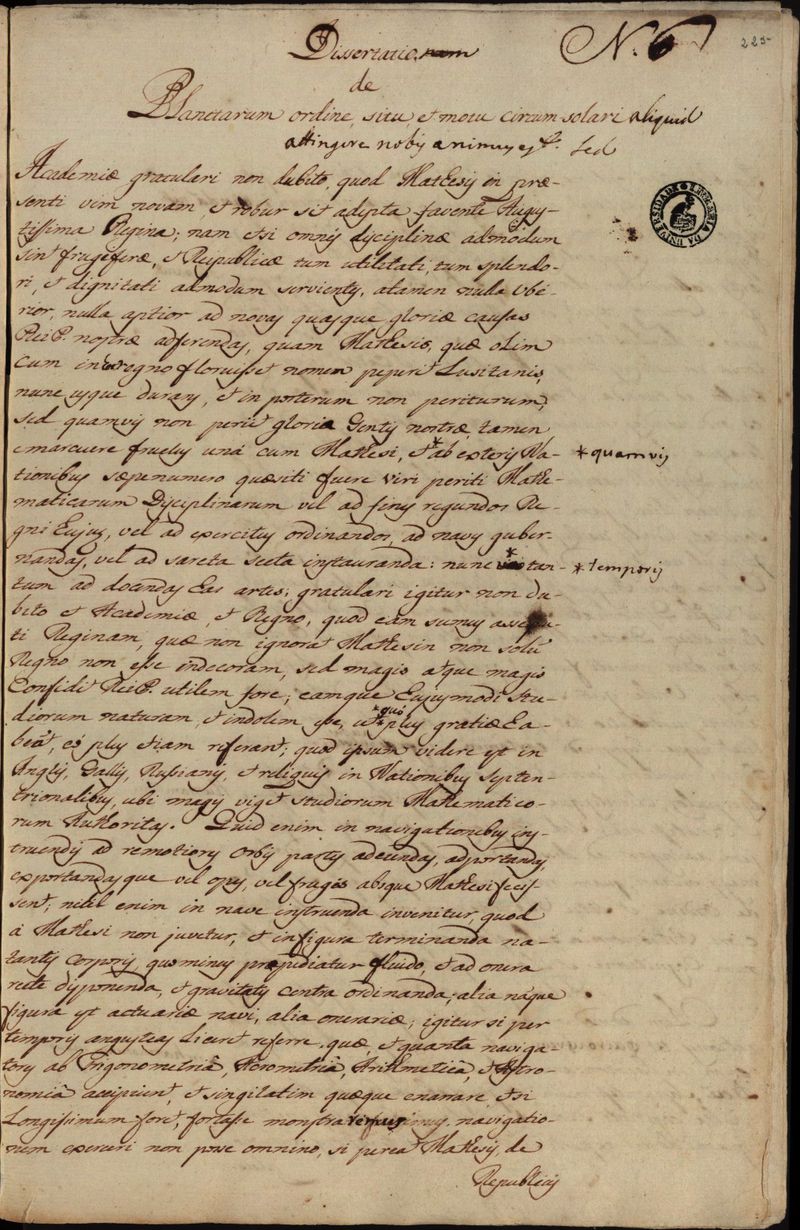 Dissertatio
N. 6
225
de
Planetarum ordine, situ et motu circum solari aliquid
attingere nobis animus est. Sed
Academiæ gratulari non dubito, quod Mathesis in præ-
senti vim novam, et robur sit adepta favente Augus-
tissima Regina; nam etsi omnes disciplinæ admodum
sint frugiferæ, et Reipublicæ tum utilitati, tum splendo-
ri, et dignitati admodum servientes, attamen nulla ube-
rior, nulla aptior ad novas quasque gloriæ causas
ReiP. nostræ adferendas, quam Mathesis, quæ olim
cum in regno floruisset nomen peperit Lusitanis,
nunc usque durans, et in posterum non periturum,
sed quamvis non periit gloria Gentis nostræ, tamen
emarcuere fructus una cum Mathesi, et * ab exteris Na-
* quamvis
tionibus sæpenumero quæsiti fuere viri periti Mathe-
maticarum Disciplinarum vel ad fines regundos Re-
gni Eujus, vel ad exercitus ordinandos, ad naves guber-
nandas, vel ad sarcta tecta instauranda: nunc * tan-
* temporis
tum ad docendas Eas artes; gratulari igitur non du-
bito et Academiæ, et Regno, quod eam sumus assecu-
ti Reginam, quæ non ignorat Mathesin non solũ
Regno non esse indecoram, sed magis atque magis
Confidit ReiP. utilem fore; eamque Eujusmodi stu-
diorum naturam, et indolem esse, ut quó plus gratiæ Ea-
beãt, eó plus etiam referant; quod ipsum videre est in
Anglis, Gallis, Russianis, et reliquis in Nationibus Septen-
trionalibus, ubi magis viget studiorum Mathematico-
rum Authoritas. Quid enim in navigationibus ins-
truendis ad remotiores Orbis partes adeundas, adportandas,
exportandasque vel opes, vel fruges absque Mathesi fecis-
sent; nihil enim in nave instruenda invenitur, quod
á Mathesi non juvetur, et in figura terminanda na-
tantis corporis quominus præpediatur fluido, et ad onera
recte disponenda, et gravitatis centra ordinanda; alia náque
figura est actuariæ navi, alia onerariæ; igitur si per
temporis angustias liceret referre, quæ et quanta naviga-
tores ab Trigonometriâ, Horometriâ, Arithmeticâ, et Astro-
nomiâ accipient, et singilatim quæque enarrare, etsi
Longissimum foret, fortasse monstra navigatio-
nem exerceri non posse omnino, si pereat Mathesis, de
Republicis